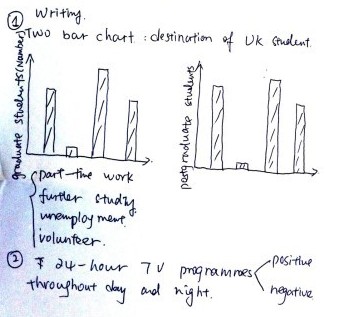 ① Writing.
Two bar chart : destination of UK student.
graduate students (Number)
postgraduate students
part-time work
further studing
unemployment
volunteer.
② 24-hour TV programmes positive
throughout day and night. negative